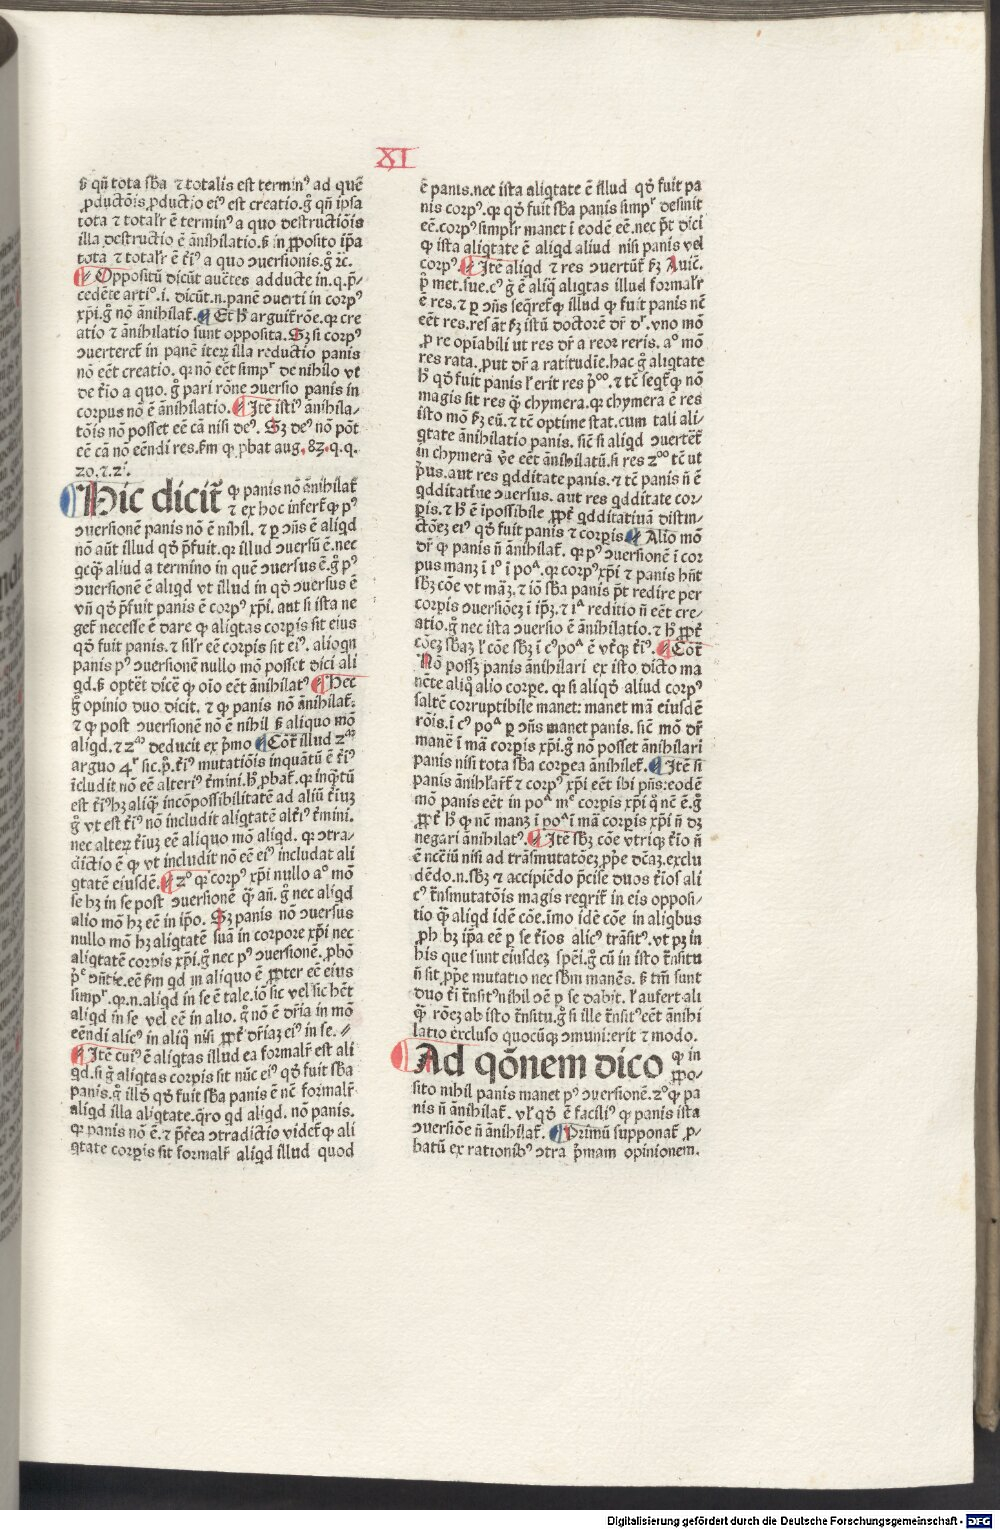 XI
ſʒ qñ tota ſba ⁊ totalis eſt terminꝰ ad quē
ꝓductōis ꝓductio eiꝰ eſt creatio.gͦ qñ ipſa
tota ⁊ totalr̃ ē terminꝰ a quo deſtructiōis
illa deſtructio ē ānihilatio.ſʒ in ꝓpoſito ip̃a
tota ⁊ totalr̃ ē ťiꝰ a quo ꝯuerſionis.gͦ ⁊c̃.
Oppoſitū dicūt auctes adducte in.q.p̄⸗
cedēte artiᵒ.i. dicūt.n.panē ꝯuerti in corpꝰ
xp̃i.gͦ nō ānihilaƭ. Et hͦ arguiƭ rōe.qꝛ cre
atio ⁊ ānihilatio ſunt oppoſita. Sʒ ſi corpꝰ
ꝯuertereƭ in panē iteꝝ illa reductio panis
nō eēt creatio. qꝛ nō eēt ſimpʳ de nihilo vt
de ťio a quo. gͦ pari rōne ꝯuerſio panis in
corpus nō ē ānihilatio. Itē iſtiꝰ ānihila⸗
tōis nō poſſet eē cā niſi deꝰ. Sʒ deꝰ nō pōt
eē cā nō eēndi res.ſm ꝙ ꝓbat aug.83.q.q.
20.⁊.2ⁱ.
Hic diciƭ ꝙ panis nō ānihilaƭ
⁊ ex hoc inferƭ ꝙ pꝰ
ꝯuerſionē panis nō ē nihil. ⁊ ꝑ ꝯñs ē aliqd
nō aūt illud qd̕ p̄fuit.qꝛ illud ꝯuerſū ē.nec
qcꝙ̄ aliud a termino in quē ꝯuerſus ē.gͦ pꝰ
ꝯuerſionē ē aliqd vt illud in qd̕ ꝯuerſus ē
vñ qd̕ p̄fuit panis ē corpꝰ xp̃i, aut ſi iſta ne
geƭ neceſſe ē dare ꝙ aliqtas corꝑis ſit eius
qd̕ fuit panis. ⁊ ſilr̃ eē corꝑis ſit eiꝰ. alioqn
panis pꝰ ꝯuerſionē nullo mō poſſet dici ali
qd.ſʒ optet dicē ꝙ oīo eēt ānihilatꝰ Hec
gͦ opinio duo dicit. ⁊ ꝙ panis nō ānihilaƭ.
⁊ ꝙ poſt ꝯuerſionē nō ē nihil ſʒ aliquo mō
aliqd. ⁊ 2ᵐ deducit ex p̄mo Cōƭ illud 2ᵐ
arguo 4ʳ ſic.p̄.ťiꝰ mutatiōis inquātū ē ťiꝰ
īcludit nō eē alteriꝰ ťmini.hͦ ꝓbaƭ.qꝛ inq̄tū
eſt ťiꝰ hʒ aliq̄ incōpoſſibilitatē ad aliū ťiuʒ
gͦ vt eſt ťiꝰ nō includit aliqtatē alťiꝰ ťmini.
nec alteꝝ ťiuʒ eē aliquo mō aliqd. qꝛ ꝯtra⸗
dictio ē ꝙ vt includit nō eē eiꝰ includat ali
qtatē eiuſdē. 2ᵒ qꝛ corpꝰ xp̃i nullo aᵒ mō
ſe hʒ in ſe poſt ꝯuerſionē q̄ añ. gͦ nec aliqd
alio mō hʒ eē in ip̃o. Sʒ panis nō ꝯuerſus
nullo mō hʒ aliqtatē ſuā in corpore xp̃i nec
aliqtatē corꝑis xp̃i.gͦ nec pꝰ ꝯuerſionē. ꝓbō
ſimpʳ.qꝛ.n.aliqd in ſe ē tale.iō ſic vel ſic hēt
aliqd in ſe vel eē in alio. gͦ nō ē dr̃ia in mō
eēndi alicꝰ in aliq̄ niſi ꝓpƭ dr̃iaʒ eiꝰ in ſe.
Itē cuiꝰ ē aliqtas illud ea formalr̃ eſt ali
qd.ſi gͦ aliqtas corꝑis ſit nūc eiꝰ qd̕ fuit ſba
panis.gͦ illd̕ qd̕ fuit ſba panis ē nē formalr̃
aliqd illa aliqtate.q̄ro qd aliqd. nō panis.
qꝛ panis nō ē.⁊ p̄t̃ea ꝯtradictio videƭ ꝙ ali
qtate corꝑis ſit formalr̃ aliqd illud quod
ē panis.nec iſta aliqtate ē illud qd̕ fuit pa
nis corpꝰ.qꝛ qd̕ fuit ſba panis ſimpʳ deſinit
eē.corpꝰ ſimplr̃ manet ī eodē eē.nec p̄t dici
ꝙ iſta aliqtate ē aliqd aliud niſi panis vel
corpꝰ. Itē aliqd ⁊ res ꝯuertūƭ ſʒ Auic̄.
p̄ met.ſue.cꝰ gͦ ē aliq̄ aliqtas illud formalr̃
ē res.⁊ ꝑ ꝯñs ſeqreƭ ꝙ illud ꝙ fuit panis nē
eēt res.reſ āt ſʒ iſtū doctorē dr̃ dʳ.vno mō
ꝓ re opiabili ut res dr̃ a reor reris. aᵒ mō
res rata. ꝓut dr̃ a ratitudīe.hac gͦ aliqtate
hͦ qd̕ fuit panis l̕ erit res pᵒ. ⁊ tē ſeqƭ ꝙ nō
magis ſit res q̄ chymera.qꝛ chymera ē res
iſto mō ſʒ eū.⁊ tē optime ſtat.cum tali ali⸗
qtate ānihilatio panis. ſic̄ ſi aliqd ꝯuerteƭ
in chymerā v̄e eēt ānihilatū.ſi res 2ᵒ tē ut
p̄us.aut res qdditate panis.⁊ tē panis ñ ē
qdditatīue ꝯuerſus. aut res qdditate cor⸗
ꝑis.⁊ hͦ ē īpoſſibile ꝓpƭ qdditatiuā diſtin⸗
ctōeʒ eiꝰ qd̕ fuit panis ⁊ corꝑis. Alio mō
dr̃ ꝙ panis ñ ānihilaƭ. qꝛ pꝰ ꝯuerſionē ī cor
pus manʒ ī iᵒ ī poᵃ.qꝛ corpꝰ xp̃i ⁊ panis hñt
ſbʒ cōe vt māʒ.⁊ iō ſba panis p̄t redire per
corꝑis ꝯuerſiōeʒ ī ip̃ʒ.⁊ iᵃ reditio ñ eēt cre⸗
atio.gͦ nec iſta ꝯuerſio ē ānihilatio.⁊ hͦ ꝓpƭ
cōeʒ ſbāʒ l̕ cōe ſbʒ ī cꝰ poᵃ ē vťqʒ ťiꝰ. Cōƭ
Nō poſſʒ panis ānihilari ex iſto dicto ma
nēte aliq̄ alio corꝑe. qꝛ ſi aliqd̕ aliud corpꝰ
ſaltē corruptibile manet: manet mā eiuſdē
rōis.ī cꝰ poᵃ ꝑ ꝯñs manet panis. ſic̄ mō dr̃
manē ī mā corꝑis xp̃i.gͦ nō poſſet ānihilari
panis niſi tota ſba corꝑea ānihileƭ. Itē ſi
panis ānihilareƭ ⁊ corpꝰ xp̃i eēt ibi pñs:eodē
mō panis eēt in poᵃ mᵉ corꝑis xp̃i q̄ nē ē.gͦ
ꝓpƭ hͦ ꝙ nē manʒ ī poᵃ ī mā corꝑis xp̃i ñ dʒ
negari ānihilatꝰ. Itē ſbʒ cōe vtriqʒ ťio ñ
ē nc̄eīu niſi ad trāſmutatōeʒ ꝓp̃e dc̄aʒ.exclu
dēdo.n.ſbʒ ⁊ accipiēdo p̄ciſe duos ťios ali
cꝰ ťnſmutatōis magis regriƭ in eis oppoſi⸗
tio q̄ aliqd idē cōe.īmo idē cōe in aliqbus
ꝓh bʒ ip̃a eē ꝑ ſe ťios alicꝰ trāſitꝰ.vt pʒ in
his que ſunt eiuſdeʒ ſpēi.gͦ cū in iſto ťnſitu
ñ ſit ꝓp̃e mutatio nec ſbm manēs. ſʒ tm̄ ſunt
duo ťi ťnſitꝰ nihil ꝯē ꝑ ſe dabit. l̕ aufert ali
q̄ rōeʒ ab iſto ťnſitu.gͦ ſi ille ťnſitꝰ eēt ānihi
latio excluſo quocūqʒ ꝯmuni:erit ⁊ modo.
Ad qōnem dico ꝙ in
ꝓpo⸗
ſito nihil panis manet pꝰ ꝯuerſionē.2ᵒ ꝙ pa
nis ñ ānihilaƭ. vl̕ qd̕ ē faciliꝰ ꝙ panis iſta
ꝯuerſiōe ñ ānihilaƭ. Primū ſupponaƭ ꝓ⸗
batū ex rationibꝰ ꝯtra p̄mam opinionem.
Digitalisierung gefördert durch die Deutsche Forschungsgemeinschaft - DFG